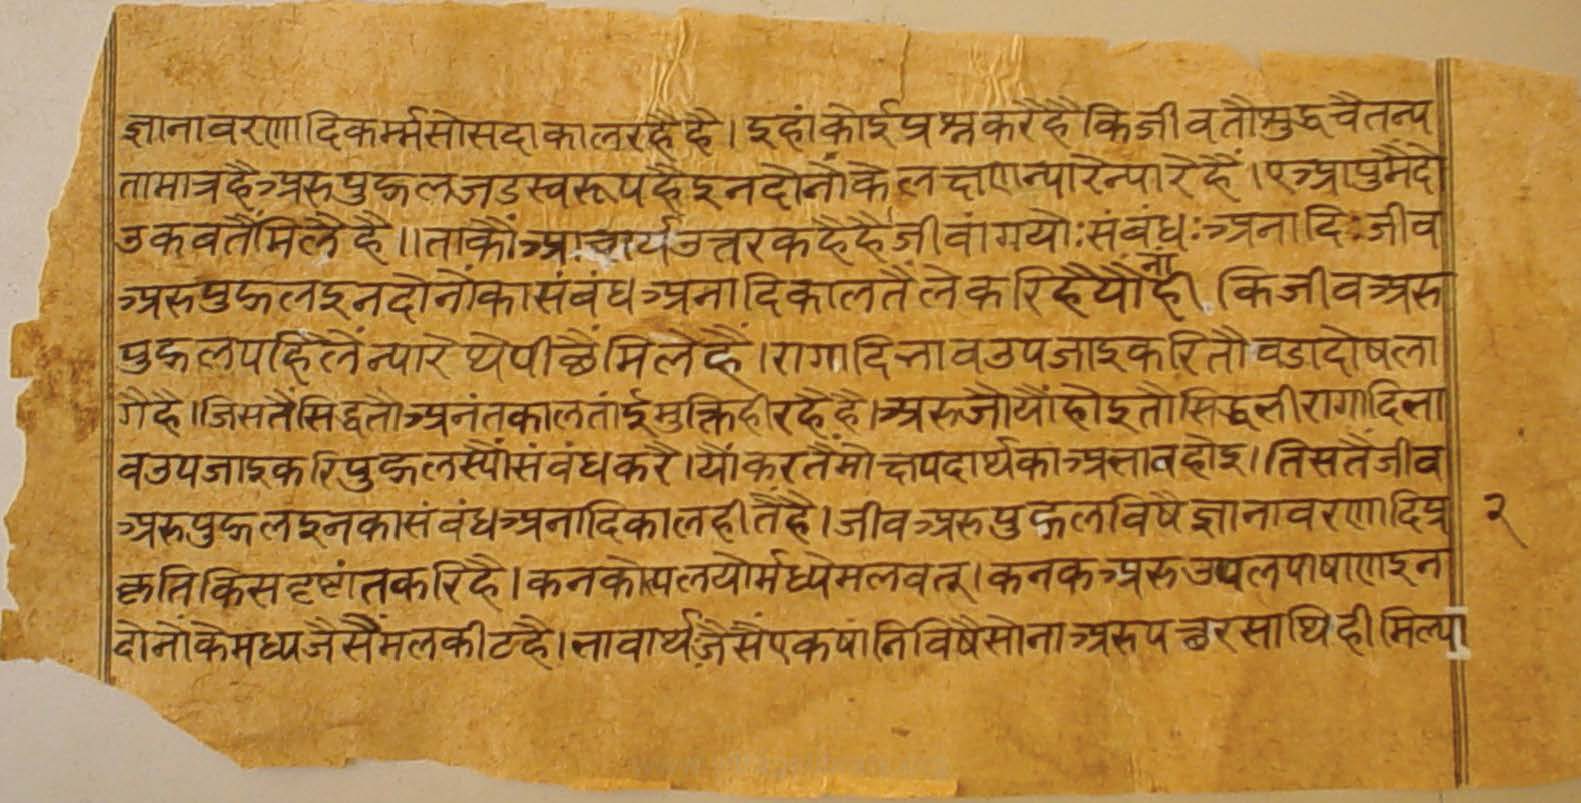 ज्ञानावरणादिकर्म्मसौसदाकालरहैहै। इहांकोईप्रश्नकरैहैकिजीवतौसुद्धचैतन्य
तामात्रहैअरुपुद्गलजडस्वरूपहैइनदोनौंकैलक्षणन्यारेन्यारेहैं। एआपुमैंदो
उकबतैंमिलैहै॥ताकौंआचार्यउत्तरकहैहैजीवांगयोः संबंधः अनादिः जीव
अरुपुद्गलइनदोनौंकासंबंधअनादिकालतैंलेकरिहैयौंनांही किजीवअरु
पुद्गलपहिलैंन्यारेथेपीछैंमिलेहैं। रागादिभावउपजाइकरितौवडादोषला
गैहै। जिसतैंसिद्धतौअनंतकालतांईमुक्तिहीरहैहै। अरुजौयौंहोइतौसिद्धभीरागादिभा
वउपजाइकरिपुद्गलस्यौंसंबंधकरै। यौंकरतैंमोक्षपदार्थकाअभावहोइ। तिसतैंजीव
अरुपुद्गलइनकासंबंधअनादिकालहीतैंहै। जीवअरुपुद्गलविषैज्ञानावरणादिप्र
कृतिकिसदृष्टांतकरिहै। कनकोपलयोर्मध्येमलवत्। कनकअरुउपलपाषाणइन
दोनौंकैमध्यजैसैंमलकीटहै। भावार्थजैसैंएकषांनिविषैसोनाअरुपछरसाथिहीमिल्या
२